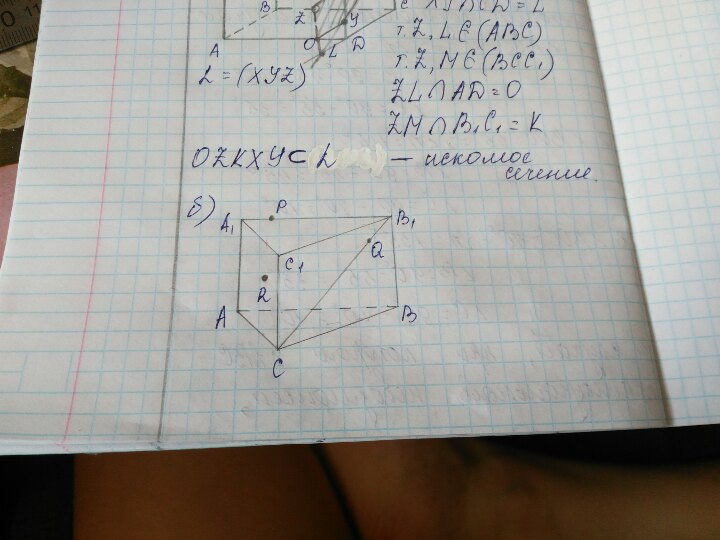 B Z Y C
A O L D
XY∩CD = L
т. Z, L ∈ (ABC)
т. Z, M ∈ (BCC₁)
ZL ∩ AD = O
ZM ∩ B₁C₁ = K
α = (XYZ)
OZKXY ⊂ α — искомое
сечение.
б)
A₁ P B₁
C₁ Q
R
A B
C